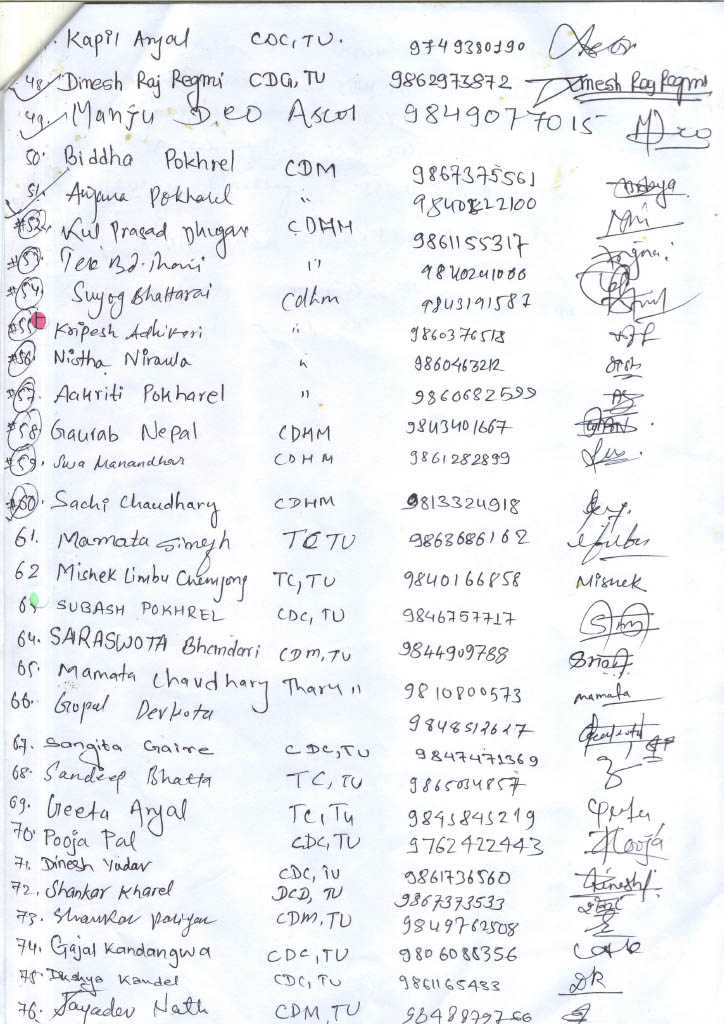 Kapil Aryal CDC, TU. 9749380190
48. Dinesh Raj Regmi CDG, TU 9862973872 Dinesh Raj Regmi
49. Manju Deo Ascol 9849077015
50. Biddha Pokhrel CDM 9867375561
51. Anjana Pokharel " 9840822100
#52. Kul Prasad Dhugan CDHM 9861155317
#53. Tek Bd. "
#54. Suyog Bhattarai Cdhm 9843191587
#55. Kripesh Adhikari " 9860376518
#56. Nistha Niraula " 9860463212
#57. Aakriti Pokharel " 9860682599
#58. Gaurab Nepal CDHM 9843401667
#59. Swa Manandhar CDHM 9861282899
#60. Sachi Chaudhary CDHM 9813324918
61. Mamata Singh TC TU 9863686162
62 Mishek Limbu Chemjong TC, TU 9840166858 Mishek
63. SUBASH POKHREL CDC, TU 9846757717
64. SARASWOTA Bhandari CDM, TU 9844909788
65. Mamata Chaudhary Tharu " 9810800573 mamata
66. Gopal Devkota 9848512627
67. Sangita Gaire CDC, TU 9847471369
68. Sandeep Bhatta TC, TU 9865034857
69. Geeta Aryal TC, TU 9845845219
70. Pooja Pal CDC, TU 9762422443 Pooja
71. Dinesh Yadav CDC, TU 9861736560 Dinesh
72. Shankar Kharel DCD, TU 9867373533
73. Shankar Pariyar CDM, TU 9849762508
74. Gajal Kandangwa CDC, TU 9806088356
75. Kandel CDC, TU 9861165433 DK
76. Jayadev Nath CDM, TU